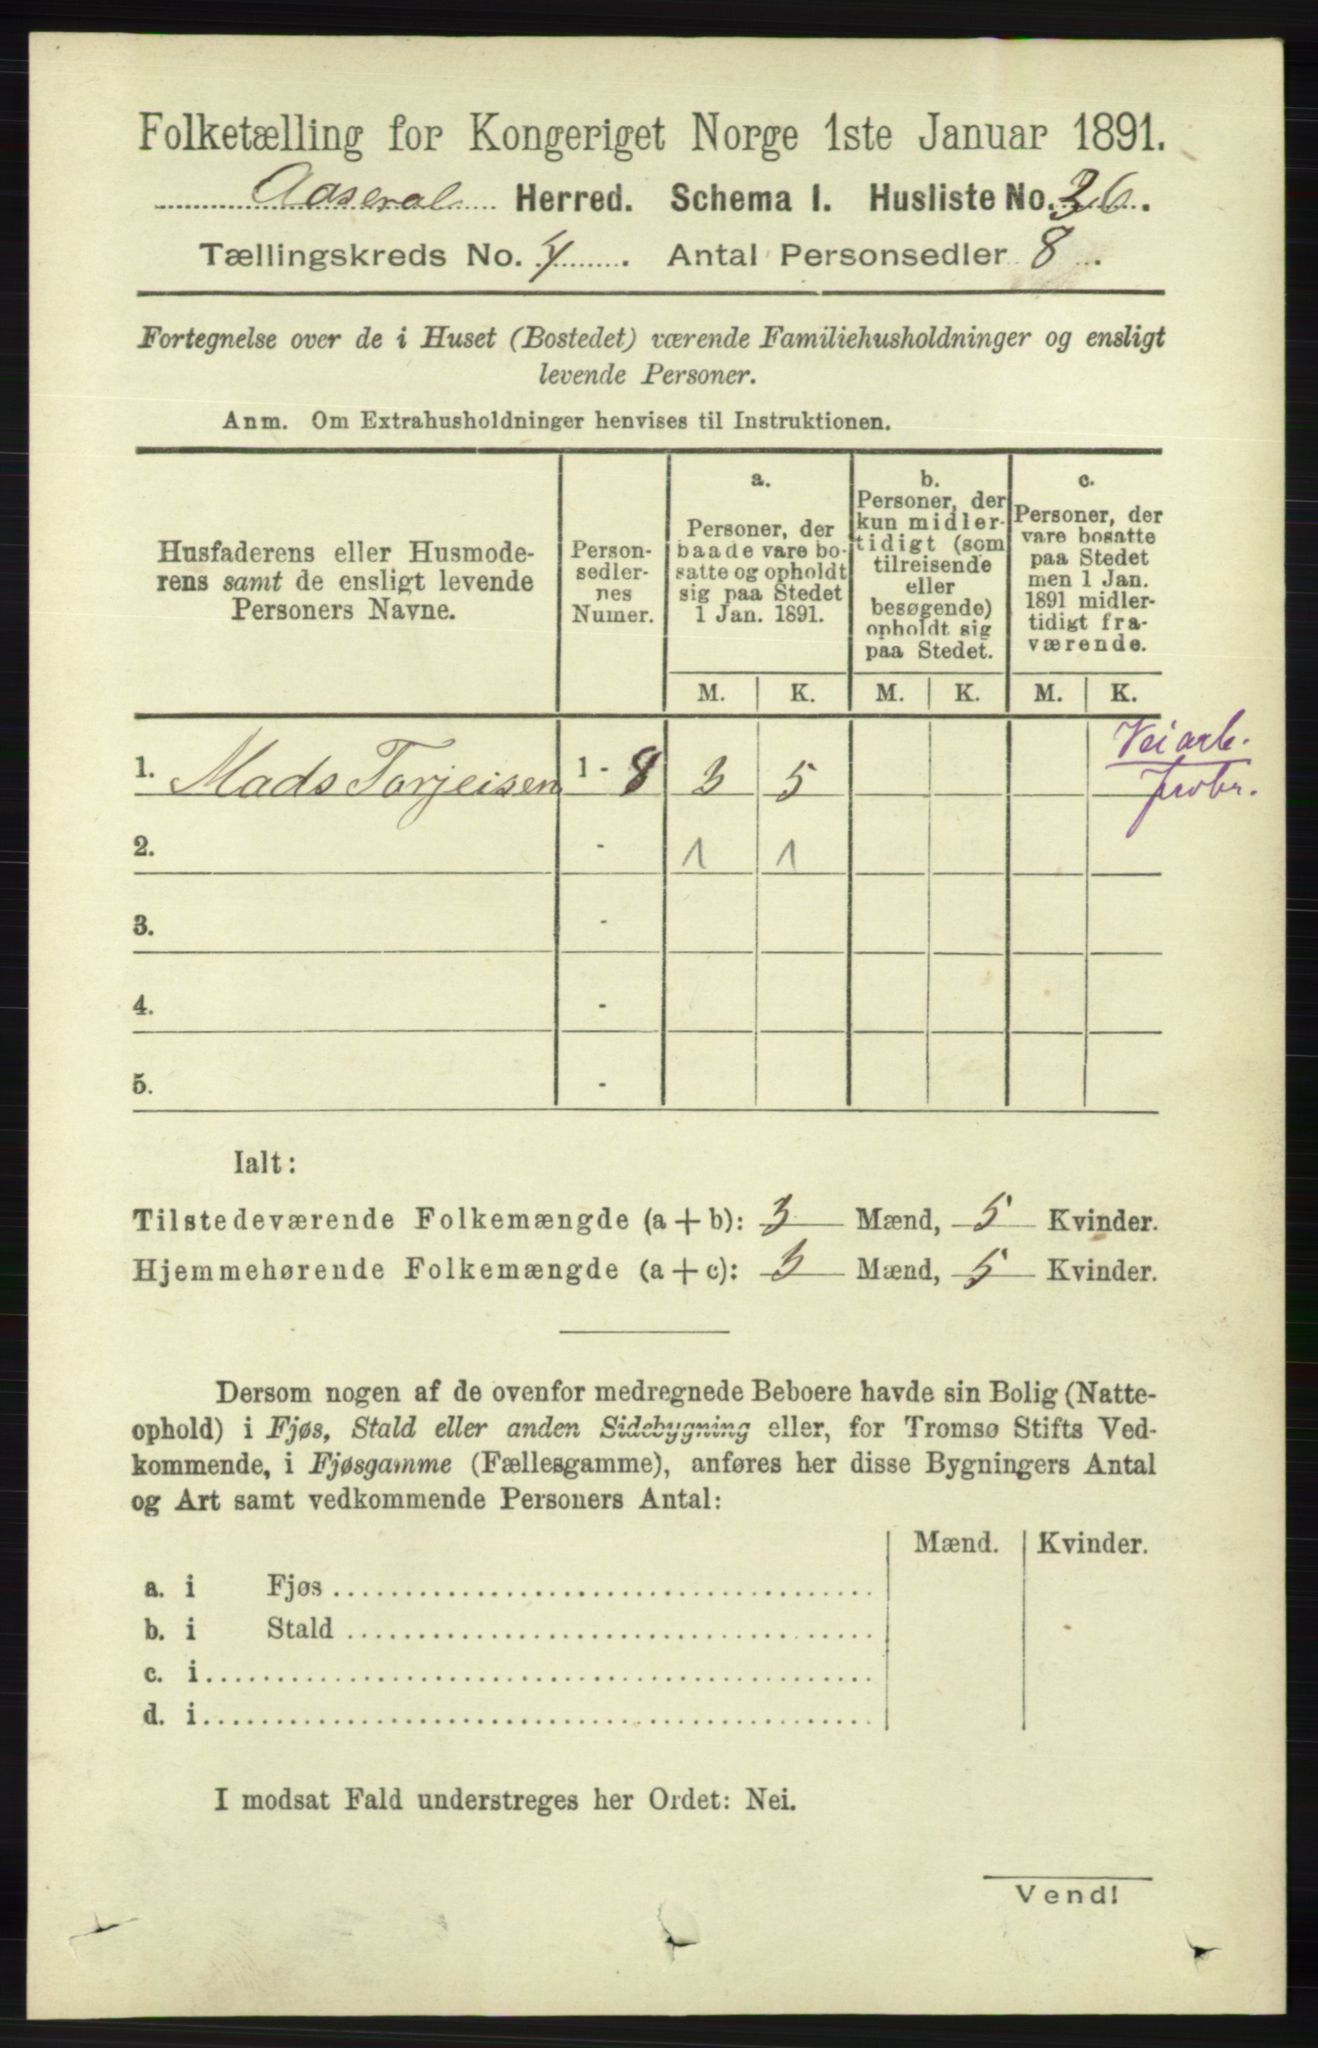 Folketælling for Kongeriget Norge 1ste Januar 1891.
Aaseral Herred. Schema I. Husliste No. 36.
Tællingskreds No. 4. Antal Personsedler 8.
Fortegnelse over de i Huset (Bostedet) værende Familiehusholdninger og ensligt
levende Personer.
Anm. Om Extrahusholdninger henvises til Instruktionen.
Husfaderens eller Husmode-
rens samt de ensligt levende
Personers Navne.
Person-
sedler-
nes
Numer.
a.
Personer, der
baade vare bo-
satte og opholdt
sig paa Stedet
1 Jan. 1891.
b.
Personer, der
kun midler-
tidigt (som
tilreisende
eller
besøgende)
opholdt sig
paa Stedet.
c.
Personer, der
vare bosatte
paa Stedet
men 1 Jan.
1891 midler-
tidigt fra-
værende.
M. K. M. K. M. K.
Veiarb.
1. Mads Torjeisen 1 - 8 3 5
2. - 1 1
3. -
4. -
5. -
Ialt:
Tilstedeværende Folkemængde (a + b): 3 Mænd, 5 Kvinder.
Hjemmehørende Folkemængde (a + c): 3 Mænd, 5 Kvinder.
Dersom nogen af de ovenfor medregnede Beboere havde sin Bolig (Natte-
ophold) i Fjøs, Stald eller anden Sidebygning eller, for Tromsø Stifts Ved-
kommende, i Fjøsgamme (Fællesgamme), anføres her disse Bygningers Antal
og Art samt vedkommende Personers Antal:
Mænd. Kvinder.
a. i Fjøs
b. i Stald
c. i
d. i
I modsat Fald understreges her Ordet: Nei.
Vend!